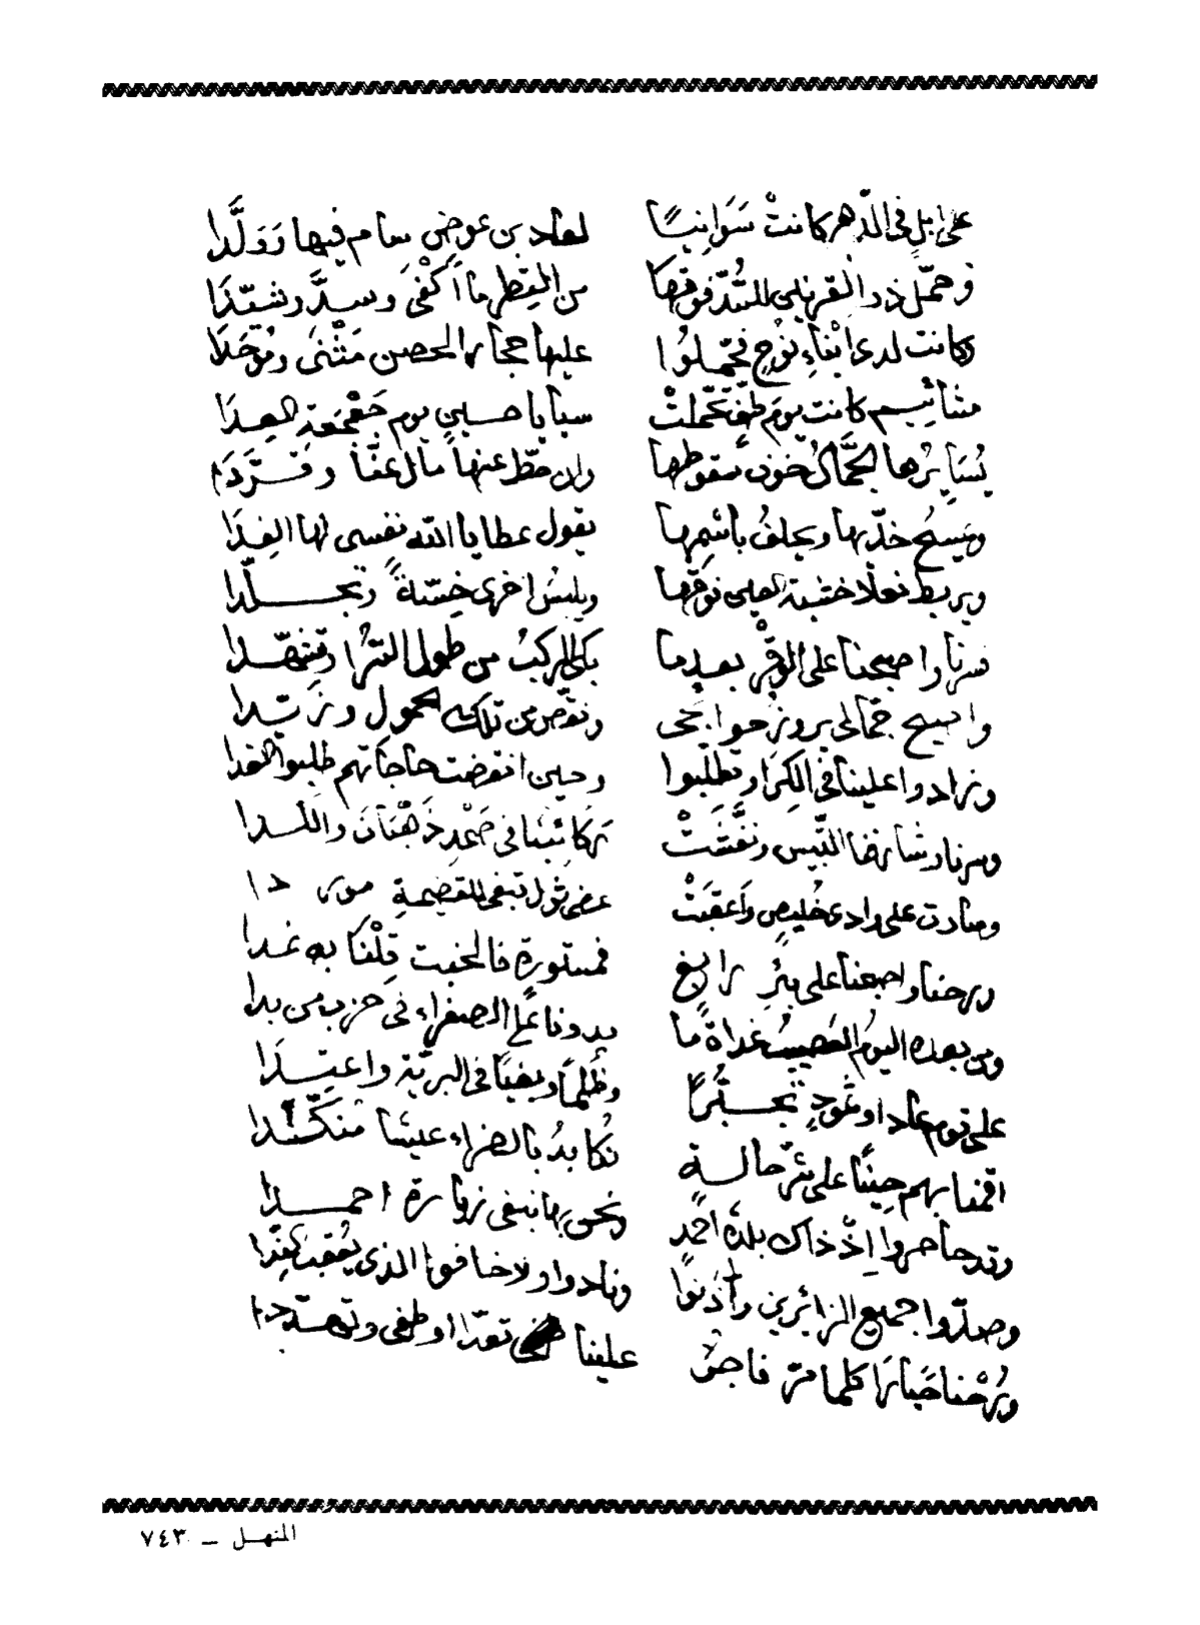 على ابل في الدّهر كانتْ سَوَانيًا لعاد بن عوض سام فيها وَوَلَّدا
وحمّل ذو القرنين للسُّدّ فوقها من القِطر ما أكْفَى وسدَّ وشتّدَا
وكانت لدى ابْناءِ نوْحٍ تحمّلوُا عليها حجار الحصن مَثْنى ومُوْحَدَا
مشائيم كانت يوم طفٍّ تحمّلتْ سبايا حسينٍ يوم جَعْجَعة العِدَا
يُسَايرُها الجمَّالُ خوف سقوطها وان حطّ عنها مال عنّا وقرَّدَا
ويَمسَحُ خدّيها ويحلفُ باسْمِها يقول عطايا اللّه نفسى لها الفِدَا
ويربط نعلًا خشية العلى فوقها ويلبسُ اخرى خِسّةً وتجلّدا
سرنا واصبحنا على الوقْرِ بعدما بكى الركبُ من طول السُّرا وتنهّدا
واصبح جمّالى يروزحوا بجى ونقّص من تلك الحمول وزَبَّدا
وزادوا علينا في الكِرَا وتطلّبوا وحين انقضت حاجاتهم طلبوا الغدا
وسرنا وشارفنا اللّيس ونفَّسَتْ ركائبنا في صَمْدِ ذَهْبَان والكدا
وصارت على وادى خُليصٍ وَاعقبَتْ على ثول تبغى للقضيمة موردا
ورحنا واصبحنا على بئرِ رابغ فمستورةٍ فالخبت قِلْنا به غدا
ومن بعده اليومُ العَصِيبُ غداةً ما بدونا على الصفراء في حزب من بدا
على قوم عاد او ثمودٍ تجبُّرًا وظُلمًا وبغيًا في البريّة واعتِدَا
اقمنا بهم حِينًا على شرّ حالة نكابدُ بالصفراء عيشا مُنكّدا
وقد حاصروا إذْ ذاك بلدةَ احمدٍ ونحن بها نبغى زيارة احمدا
وصدّوا جميع الزائرين وأذنوا ونادوا ولا خافوا الذى يُعْقب غدا
ورُحْنا حَيَارَا كلما مرّ فاجرٌ علينا تعدّا او طغى وتهدّدا
المنهل – ٧٤٣